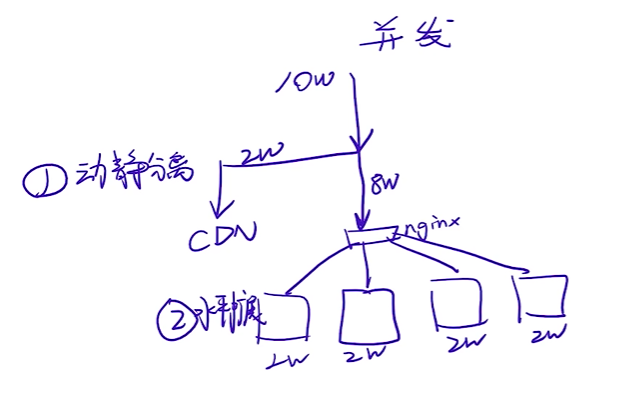 并发
10W
2W
① 动静分离
8W
CDN
nginx
② 水平扩展
2W
2W
2W
2W